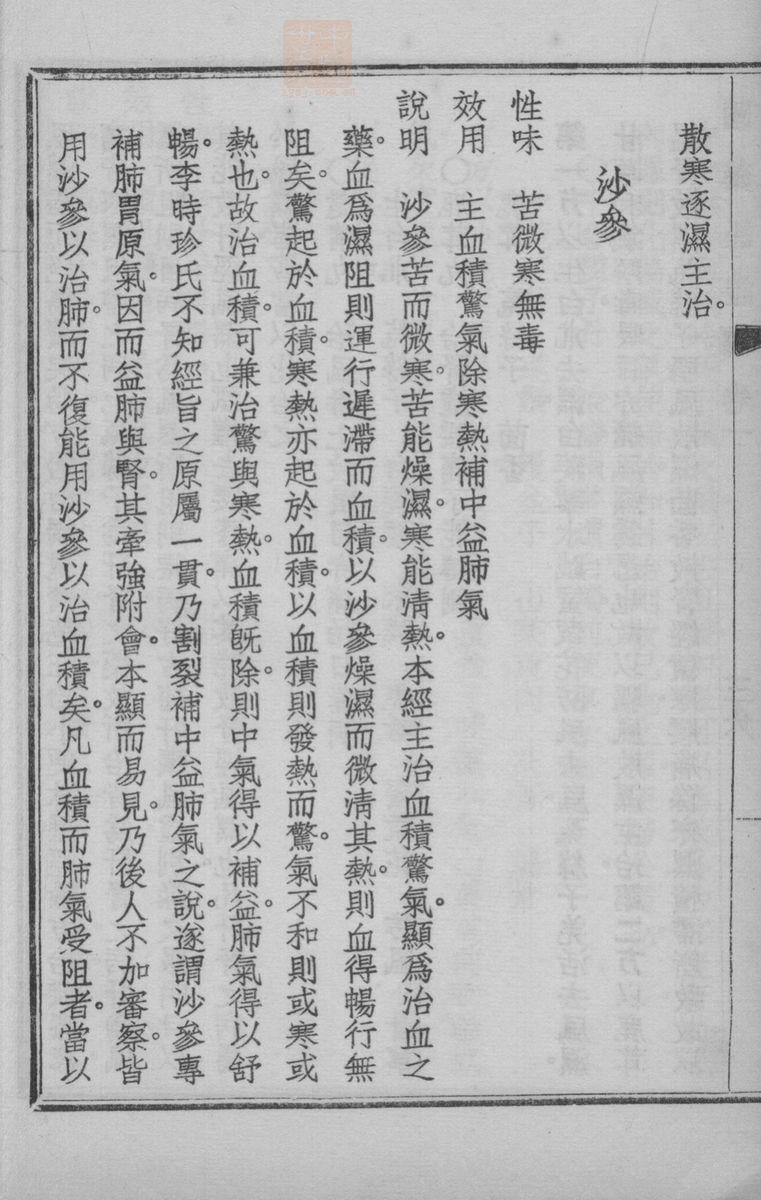 散寒逐濕主治。
沙參
性味　苦微寒無毒
效用　主血積驚氣除寒熱補中益肺氣
說明　沙參苦而微寒。苦能燥濕。寒能淸熱。本經主治血積驚氣。顯爲治血之
藥。血爲濕阻則運行遲滯而血積。以沙參燥濕而微淸其熱。則血得暢行無
阻矣。驚起於血積。寒熱亦起於血積。以血積則發熱而驚。氣不和則或寒或
熱也。故治血積。可兼治驚與寒熱。血積旣除。則中氣得以補益。肺氣得以舒
暢。李時珍氏不知經旨之原屬一貫。乃割裂補中益肺氣之說。遂謂沙參專
補肺胃原氣。因而益肺與腎。其牽強附會。本顯而易見。乃後人不加審察。皆
用沙參以治肺。而不復能用沙參以治血積矣。凡血積而肺氣受阻者。當以